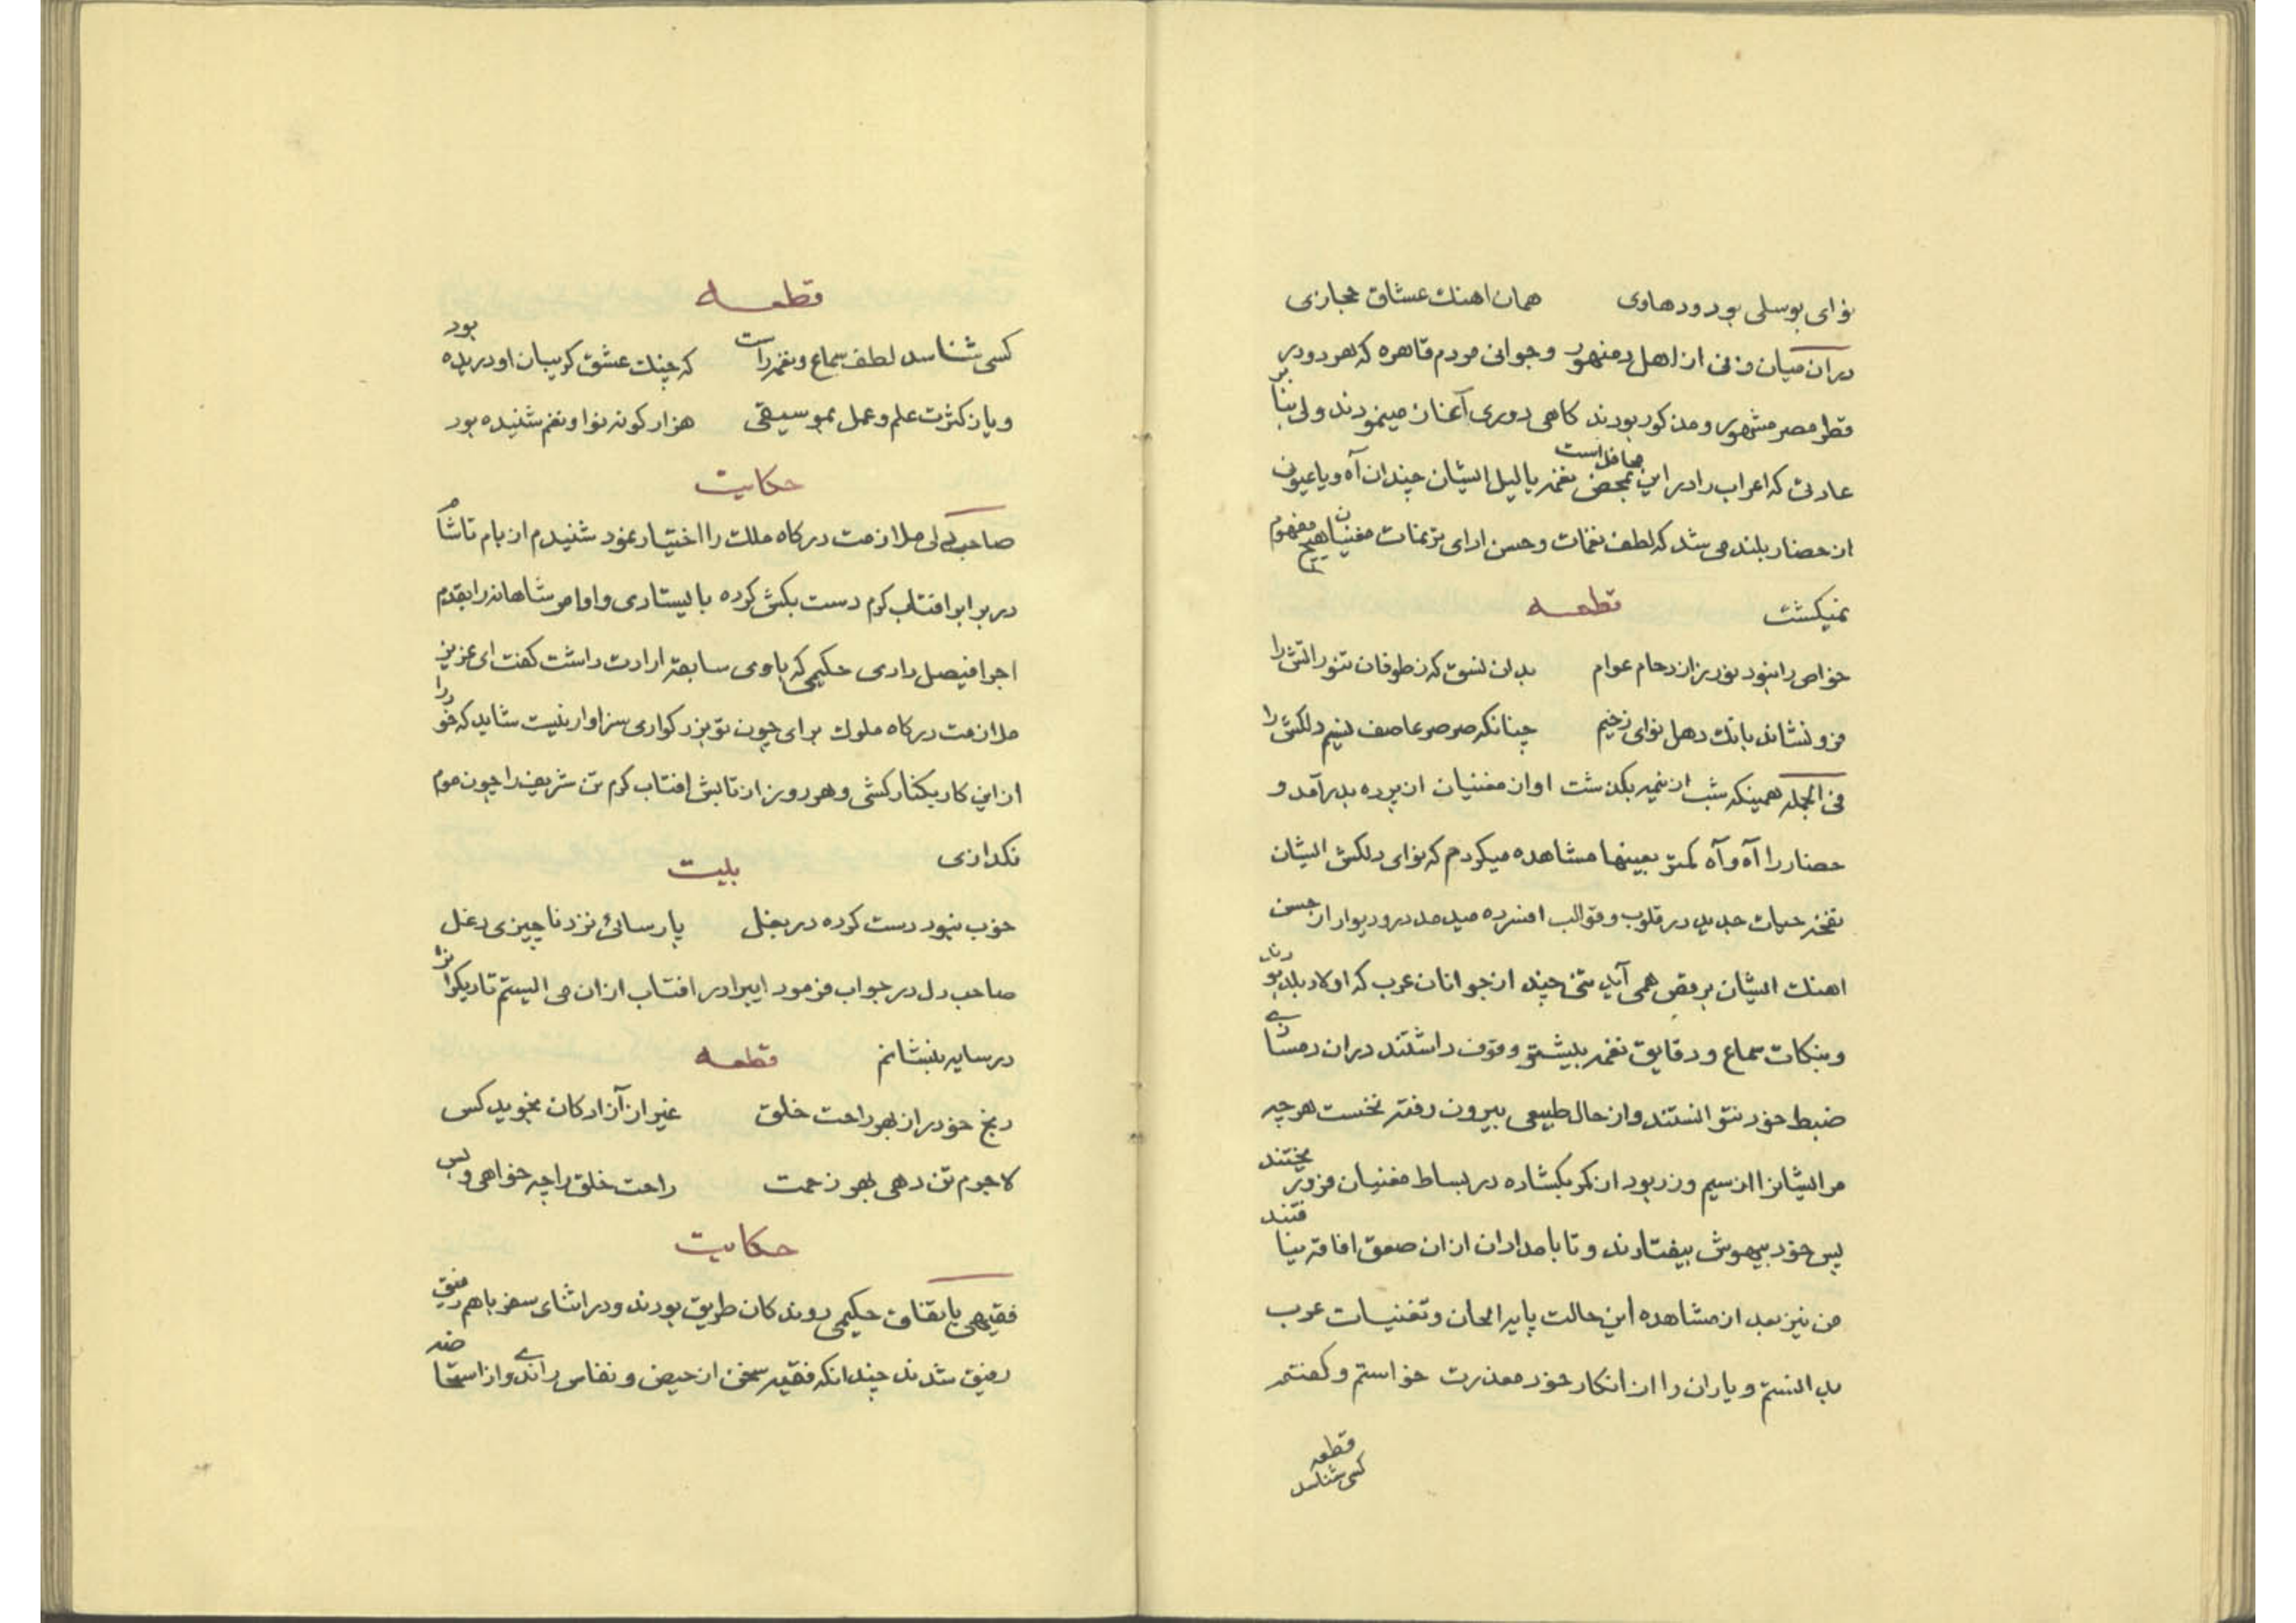 نوای بوسلی بود ودهاوی همان اهنك عشاق حجازی
دران میان زنی از اهل دمنهور وجوانی مردم قاهره که هر دو در
قطر مصر مشهور ومذکور بودند کاهی دوری آغاز مینمودند ولی بنا بر
عادتی که اعراب را در این محافل است بمحض نغمه یالیل ایشان چندان آه ویاعیونی
از حضار بلند می شد که لطف نغمات وحسن ارای ترنمات مغنیان هیچ مفهوم
نمیکشت قطعه
خواص را نبود نور بزازدحام عوام بدان نسق که ز طوفان تنور اتش را
فرونشاند بانك دهل نوای رخیم چنانکه صرصر عاصف نسیم دلکش را
فی الجمله همینکه شب از نیمه بکذشت اوان مغنیان از پرده بدر آمد و
حضار را آه و آه کمتر بعینها مشاهده میکردم که نوای دلکش ایشان
نفخه حیات جدید در قلوب وقوالب افسرده میدمد در ودیوار از حسن
اهنك ایشان برقص همی آید تنی چند از جوانان عرب که اولاد بلد بودند
وبنکات سماع ودقایق نغمه بیشتر وقوف داشتند دران دمسانی
ضبط خود نتوانستند واز حال طبیعی بیرون رفته نخست هر چه
مر ایشانرا از سیم وزر بود از کمر بکشاده در بساط مغنیان فرو ریختند
پس خود بیهوش بیفتادند وتا بامدادان ازان صعق افاقه نیافتند
من نیز بعد از مشاهده این حالت پایه الحان وتغنیات عرب
بدانستم ویاران را از انکار خود معذرت خواستم وکفتم
قطعه
کسی شناسد
قطعه
کسی شناسد لطف سماع ونغمه راست که چنك عشق کریبان او دریده بود
ویا زکثرت علم وعمل بموسیقی هزار کونه نوا ونغم شنیده بود
حکایت
صاحبدلی ملازمت درکاه ملك را اختیار نمود شنیدم از بام تا شام
در برابر افتاب کرم دست بکش کرده بایستادی واوامر شاهانه را بقدم
اجرا فیصل دادی حکیمی که باوی سابقه ارادت داشت کفت ای عزیز
ملازمت درکاه ملوك برای چون تو بزرکواری سزاوار نیست شاید که خود را
از این کار بکنار کشی وهر روز از تابش افتاب کرم تن شریفترا چون موم
نکدازی بیت
خوب نبود دست کرده در بغل پارسائی نزد ناچیزی دغل
صاحب دل در جواب فرمود ایبرادر افتاب ازان می ایستم تا دیکرانرا
در سایه بنشانم قطعه
رنج خود را از بهر راحت خلق غیر از آزادکان نجوید کس
لاجرم تن دهی بهر زحمت راحت خلق را چه خواهی وبس
حکایت
فقیهی باتفاق حکیمی روندکان طریق بودند ودر اثنای سفر باهم رفیق
رفیق شدند چندانکه فقیه سخن از حیض ونفاس راندی واز استحاضه